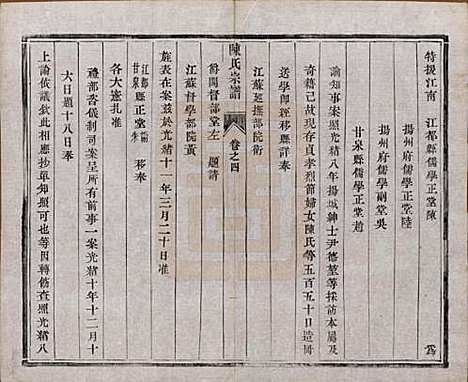 特授江南　江都縣儒學正堂陳
揚州府儒學正堂陸
揚州府儒學副堂吳
甘泉縣儒學正堂趙　為
諭知事案照光緒八年揚城紳士尹德堃等採訪本屬及
寄籍已故現存貞孝烈節婦女陳氏等五百五十口造冊
送學即經移縣詳奉
江蘇巡撫部院衛
陳氏宗譜　卷之四
爵閣督部堂左　題請
江蘇督學部院黃
旌表在案茲於光緒十一年三月二十日准
江都甘泉縣正堂　移奉
各大憲札准
禮部咨儀制司案呈所有前事一案光緒十年十二月十
六日題十八日奉
上諭依議欽此相應抄單知照可也等因轉飭查照光緒八